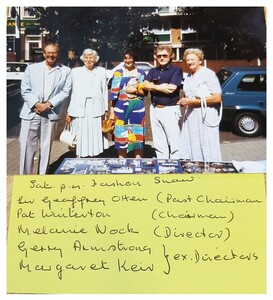 Sat p.m. Fashion Show:
Sir Geoffrey Otten (Past Chairman
Pat Winterton (Chairman)
Melanie Nock (Director)
Gerry Armstrong } ex. Directors
Margaret Keir